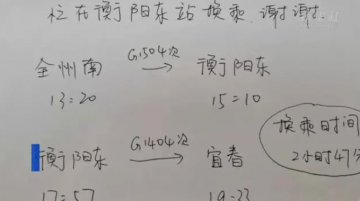 在衡阳东站换乘.谢谢.
G1504次
全州南 衡阳东
13:20 15:10
换乘时间
2小时47分
G1404次
衡阳东 宜春
17:57 19:33